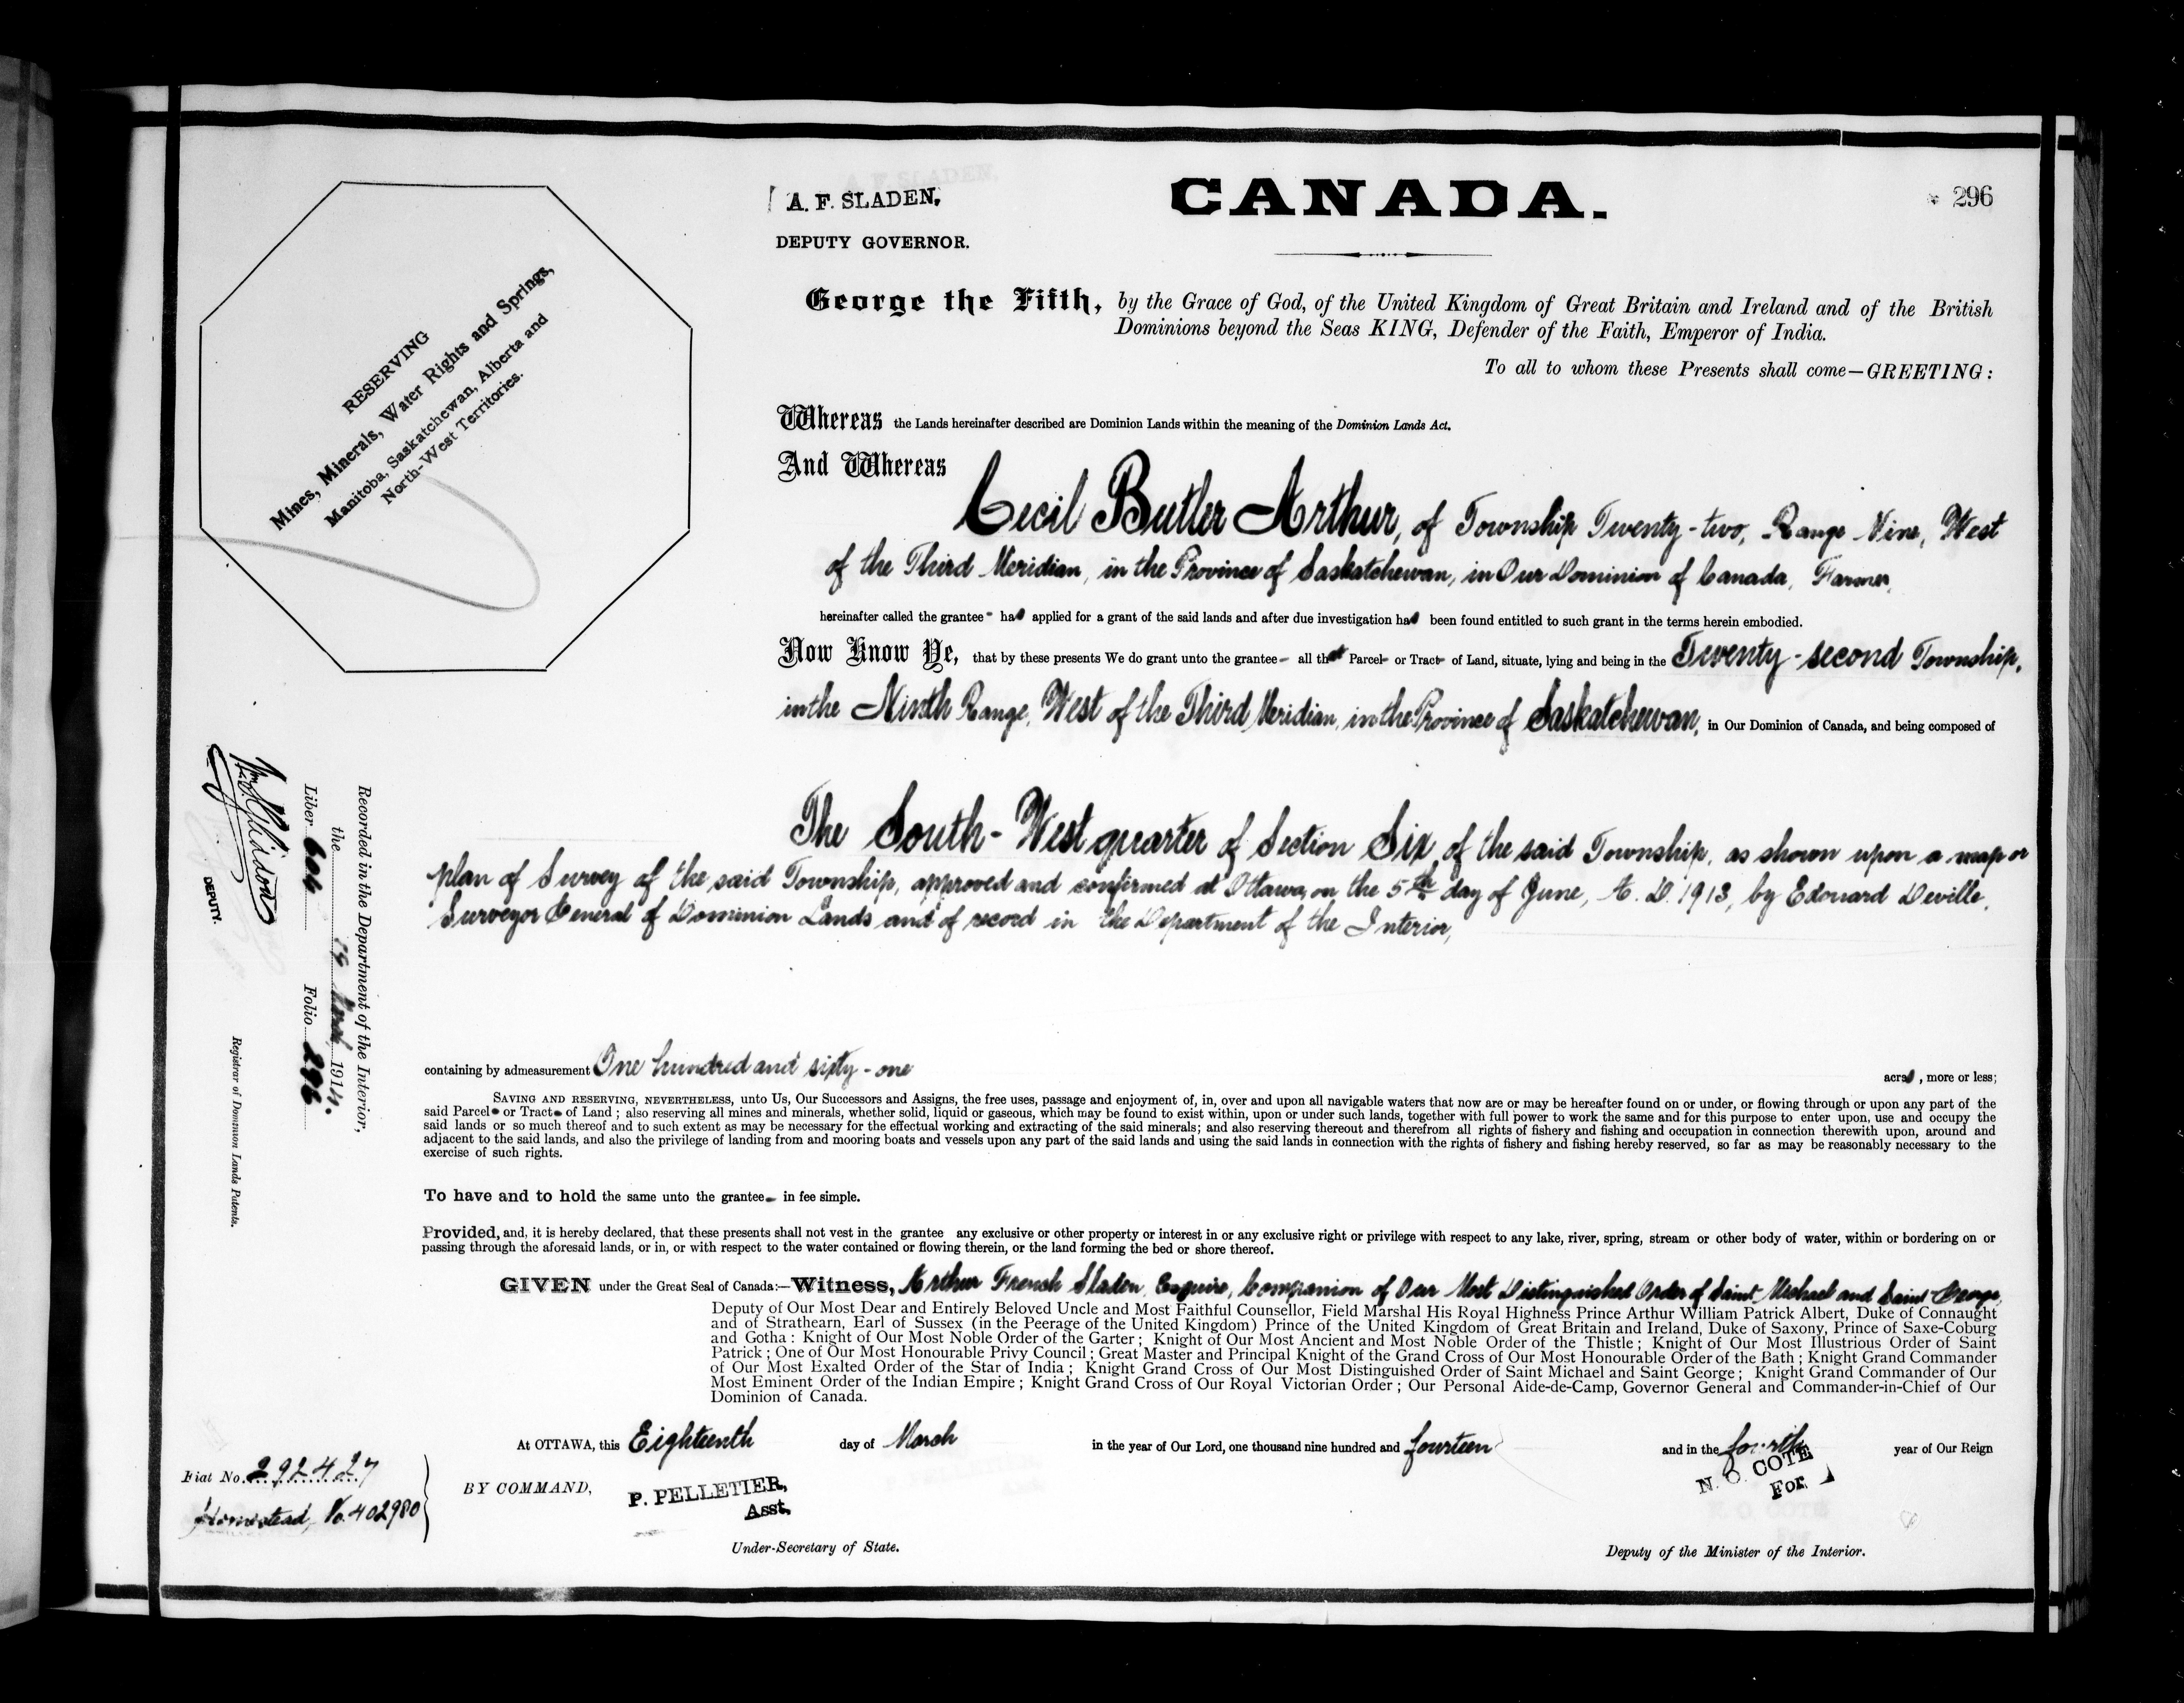 A. F. SLADEN,
DEPUTY GOVERNOR.
CANADA.
296
George the Fifth, by the Grace of God, of the United Kingdom of Great Britain and Ireland and of the British
Dominions beyond the Seas KING, Defender of the Faith, Emperor of India.
To all to whom these Presents shall come—GREETING:
RESERVING
Mines, Minerals, Water Rights and Springs,
Manitoba, Saskatchewan, Alberta and
North-West Territories.
Whereas the Lands hereinafter described are Dominion Lands within the meaning of the Dominion Lands Act.
And Whereas
Cecil Butler Arthur, of Township Twenty-two, Range Nine, West
of the Third Meridian, in the Province of Saskatchewan, in Our Dominion of Canada, Farmer,
hereinafter called the grantee- has applied for a grant of the said lands and after due investigation has been found entitled to such grant in the terms herein embodied.
Now Know Ye, that by these presents We do grant unto the grantee- all that Parcel- or Tract- of Land, situate, lying and being in the Twenty-second Township,
in the Ninth Range, West of the Third Meridian, in the Province of Saskatchewan, in Our Dominion of Canada, and being composed of
The South-West quarter of Section Six, of the said Township, as shown upon a map or
plan of Survey of the said Township, approved and confirmed at Ottawa, on the 5th day of June, A. D. 1913, by Edouard Deville,
Surveyor General of Dominion Lands and of record in the Department of the Interior,
containing by admeasurement One hundred and sixty-one acres, more or less;
SAVING AND RESERVING, NEVERTHELESS, unto Us, Our Successors and Assigns, the free uses, passage and enjoyment of, in, over and upon all navigable waters that now are or may be hereafter found on or under, or flowing through or upon any part of the
said Parcel- or Tract- of Land; also reserving all mines and minerals, whether solid, liquid or gaseous, which may be found to exist within, upon or under such lands, together with full power to work the same and for this purpose to enter upon, use and occupy the
said lands or so much thereof and to such extent as may be necessary for the effectual working and extracting of the said minerals; and also reserving thereout and therefrom all rights of fishery and fishing and occupation in connection therewith upon, around and
adjacent to the said lands, and also the privilege of landing from and mooring boats and vessels upon any part of the said lands and using the said lands in connection with the rights of fishery and fishing hereby reserved, so far as may be reasonably necessary to the
exercise of such rights.
To have and to hold the same unto the grantee- in fee simple.
Provided, and, it is hereby declared, that these presents shall not vest in the grantee any exclusive or other property or interest in or any exclusive right or privilege with respect to any lake, river, spring, stream or other body of water, within or bordering on or
passing through the aforesaid lands, or in, or with respect to the water contained or flowing therein, or the land forming the bed or shore thereof.
GIVEN under the Great Seal of Canada:—Witness, Arthur French Sladen, Esquire, Companion of Our Most Distinguished Order of Saint Michael and Saint George,
Deputy of Our Most Dear and Entirely Beloved Uncle and Most Faithful Counsellor, Field Marshal His Royal Highness Prince Arthur William Patrick Albert, Duke of Connaught
and of Strathearn, Earl of Sussex (in the Peerage of the United Kingdom) Prince of the United Kingdom of Great Britain and Ireland, Duke of Saxony, Prince of Saxe-Coburg
and Gotha: Knight of Our Most Noble Order of the Garter; Knight of Our Most Ancient and Most Noble Order of the Thistle; Knight of Our Most Illustrious Order of Saint
Patrick; One of Our Most Honourable Privy Council; Great Master and Principal Knight of the Grand Cross of Our Most Honourable Order of the Bath; Knight Grand Commander
of Our Most Exalted Order of the Star of India; Knight Grand Cross of Our Most Distinguished Order of Saint Michael and Saint George; Knight Grand Commander of Our
Most Eminent Order of the Indian Empire; Knight Grand Cross of Our Royal Victorian Order; Our Personal Aide-de-Camp, Governor General and Commander-in-Chief of Our
Dominion of Canada.
At OTTAWA, this Eighteenth day of March in the year of Our Lord, one thousand nine hundred and fourteen and in the fourth year of Our Reign
BY COMMAND,
P. PELLETIER,
Asst.
Under-Secretary of State.
N. O. COTE
For
Deputy of the Minister of the Interior.
Fiat No. 292427
Homestead, No. 402980
Recorded in the Department of the Interior,
the 19 1914.
Liber 604 Folio 296
DEPUTY.
Registrar of Dominion Lands Patents.